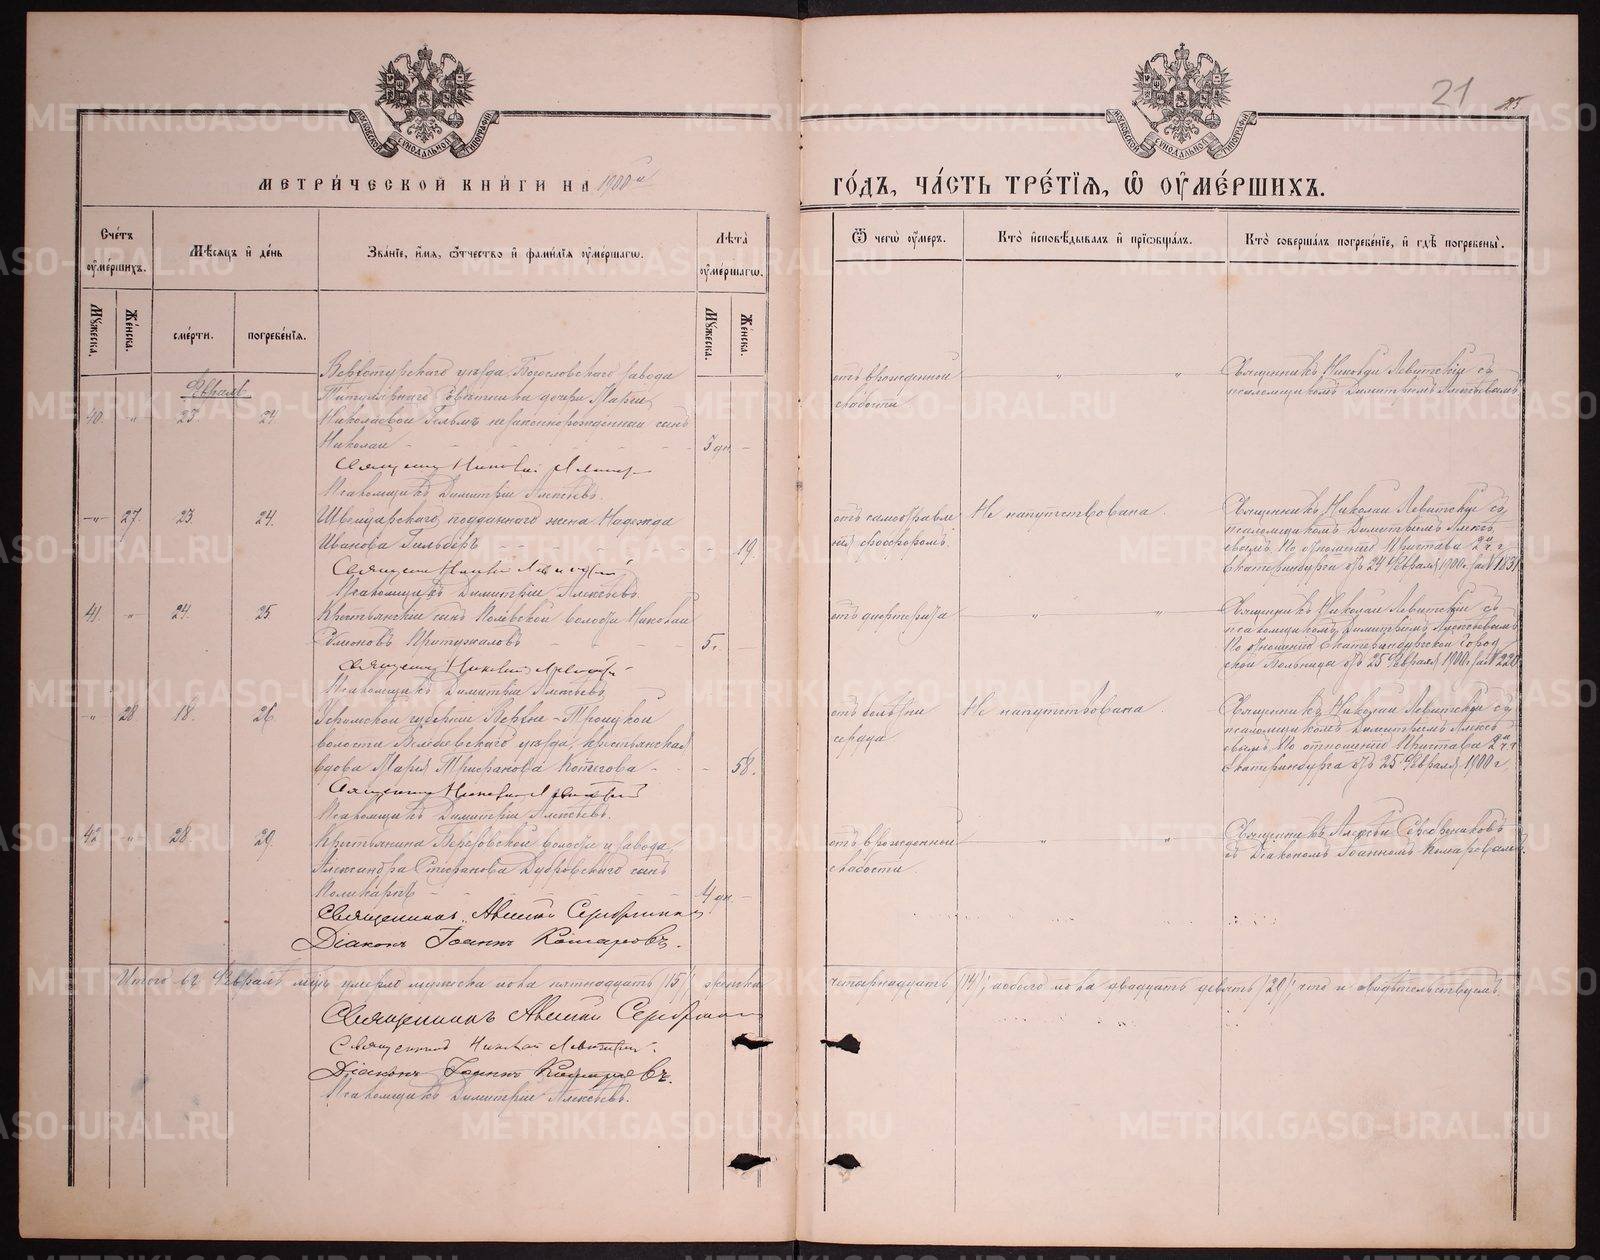 МЕТРИЧЕСКОЙ КНИГИ НА 1900й
ГОДЪ, ЧАСТЬ ТРЕТІЯ, Ѿ ОУМЕРШИХЪ.
21
МОСКОВСКОЙ СИНОДАЛЬНОЙ ТИПОГРАФІИ
МОСКОВСКОЙ СИНОДАЛЬНОЙ ТИПОГРАФІИ
Счетъ оумершихъ.
Мѣсяцъ и день
Званіе, имя, отчество и фамилія оумершагѡ.
Лѣта оумершагѡ.
Ѿ чегѡ оумеръ.
Кто исповѣдывалъ и пріобщалъ.
Кто совершалъ погребеніе, и гдѣ погребены.
Мужеска.
Женска.
смерти.
погребенія.
Мужеска.
Женска.
Февраль
40. " 23. 24
Верхотурскаго уѣзда, Богословскаго завода
Титулярнаго Совѣтника дочери Маріи
Николаевой Гельмъ незаконнорожденный сынъ
Николай
3 дн.
Священникъ Николай Левитскій
Псаломщикъ Димитрій Алексѣевъ.
отъ врожденной
слабости
Священникъ Николай Левитскій съ
псаломщикомъ Димитріемъ Алексѣевымъ
" 27. 23. 24.
Швейцарскаго подданнаго жена Надежда
Иванова Гильберъ
19.
Священникъ Николай Левитскій
Псаломщикъ Димитрій Алексѣевъ.
отъ самоотравле
нія фосфоромъ.
Не напутствована.
Священникъ Николай Левитскій съ
псаломщикомъ Димитріемъ Алексѣ
евымъ. По отношенію Пристава 2й ч. г.
Екатеринбурга отъ 24 Февраля 1900 г. за № 1831
41. " 24. 25.
Крестьянскій сынъ волости Николай
5.
Священникъ Николай Левитскій
Псаломщикъ Димитрій Алексѣевъ
отъ дифтерита
Священникъ Николай Левитскій съ
псаломщикомъ Димитріемъ Алексѣевымъ
По отношенію Екатеринбургской Город
ской Больницы отъ 25 Февраля 1900 г. за № 220
" 28 18. 26.
губерніи Верхне-Троицкой
волости Белебеевскаго уѣзда, крестьянская
вдова Марія Трифанова Котегова
58.
Священникъ Николай Левитскій
Псаломщикъ Димитрій Алексѣевъ.
отъ болѣзни
сердца
Не напутствована.
Священникъ Николай Левитскій съ
псаломщикомъ Димитріемъ Алексѣ
евымъ. По отношенію Пристава 2й ч. г.
Екатеринбурга отъ 25 Февраля 1900 г.
42 " 28. 29.
Крестьянина Березовской волости и завода,
Александра Стефанова Дубровскаго сынъ
Поликарпъ
4 дн.
Священникъ Алексій Серебренниковъ
Діаконъ Іоаннъ Комаровъ.
отъ врожденной
слабости.
Священникъ Алексѣй Серебренниковъ
съ Діакономъ Іоанномъ Комаровымъ.
Итого въ Февралѣ м-цѣ умерло мужеска пола пятнадцать (15), женска
четырнадцать (14), обоего пола двадцать девять (29), что и свидѣтельствуемъ.
Священникъ Алексій Серебренниковъ
Священникъ Николай Левитскій.
Діаконъ Іоаннъ Комаровъ.
Псаломщикъ Димитрій Алексѣевъ.
METRIKI.GASO-URAL.RU